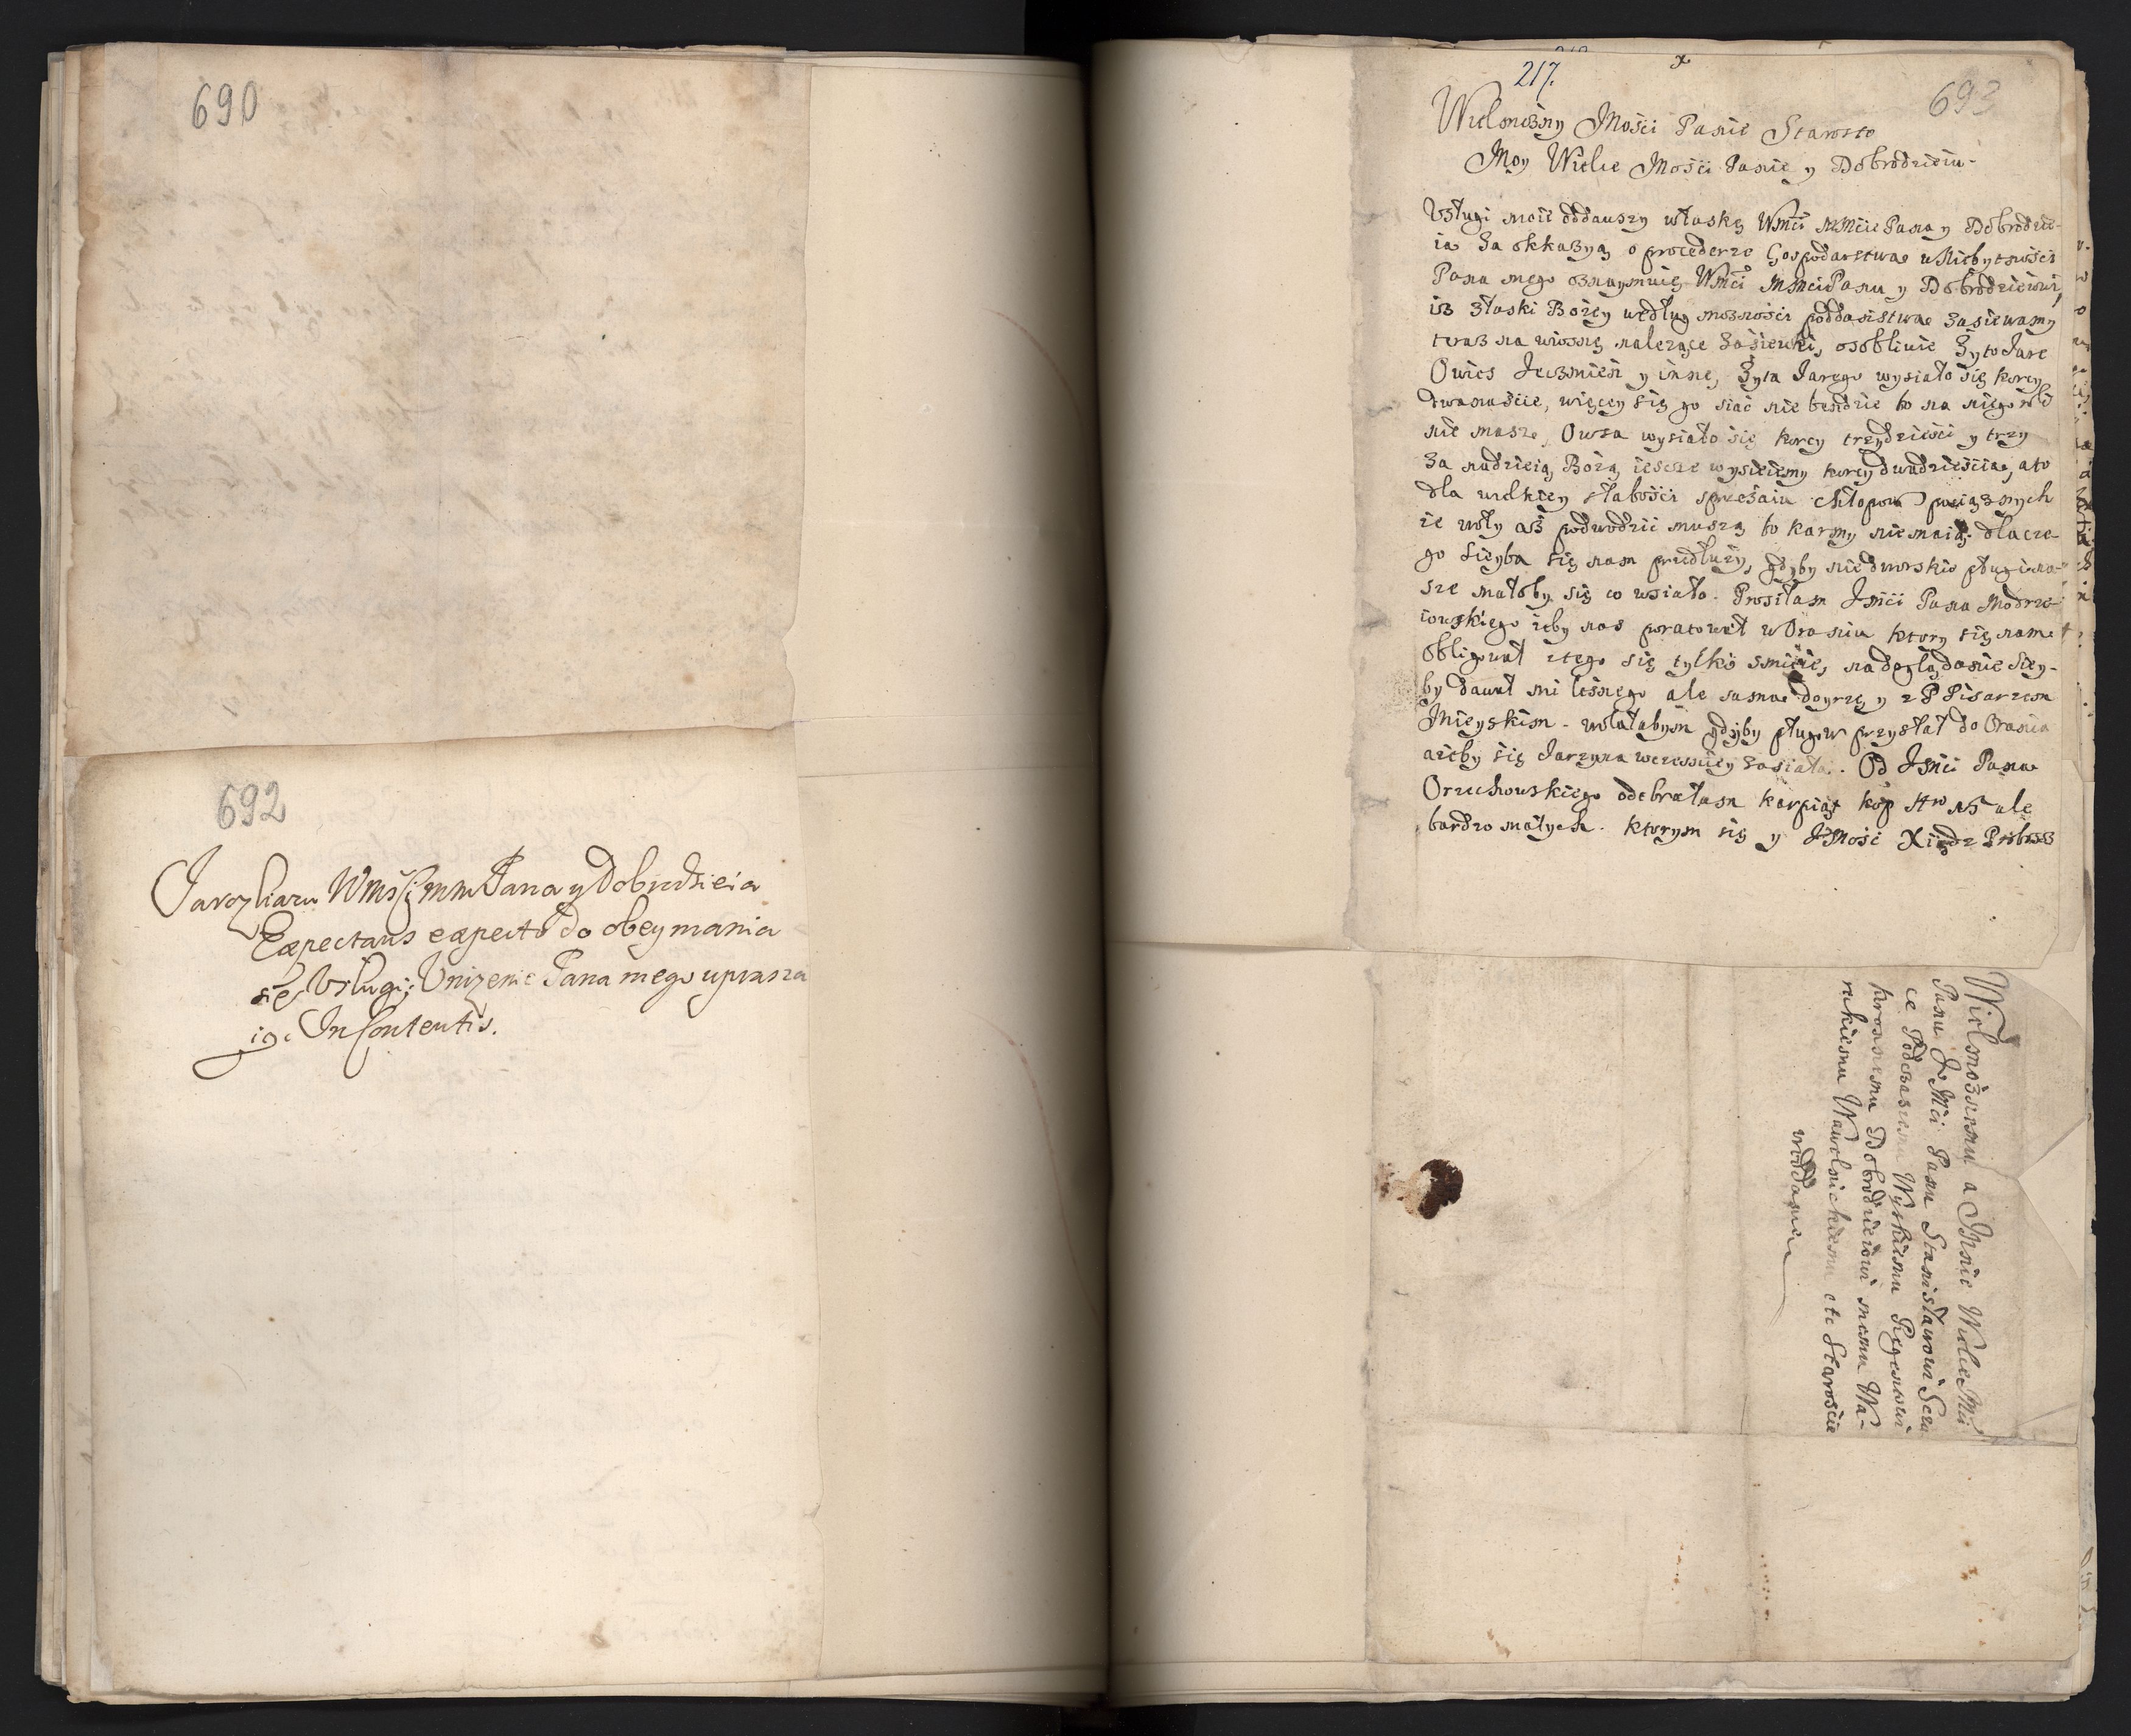 690
692
Jarozliaru Wmsci mm Pana y Dobrodzieia
Expectans expecto do obeymania
się Vsługi; Vnizenie Pana mego uprasza
ią. In Contentis.
217.
693
Wielmozny Mości Panie Starosto
Moy Wielce Mości Panie y Dobrodzieiu
Vsługi moie oddauszy właskę Wmci MMcie Pana y Dobrodzie-
ia Za okkazyą o procederze Gospodarstwa w Niebytności
Pana mego oznaymuię Wmci MMciPanu y Dobrodzieiowi,
isz złaski Bozey według moznosci poddanstwa zasiewamy
teraz na wiosnę nalezące Zasiewki, osobliwie Zyto Jare
Owies Jeczmień y inne, Zyta Jarego wysiało się korcy
dwanaście, więcey się go siać nie bendzie bo na niego roli
nie masz, Owsa wysiało się korcy trzydzieści y trzy
Za nadzieią Bozą ieszcze wysieiemy korcy dwadzieścia, ato
dla wielkiey słabości sprzezaiu chłopow pociąznych
ie woły asz podwodzić muszą bo karmy nie maią. dlacze-
go Sieyba się nam przedłuzy, gdyby nie dworskie pługi na-
sze małoby się co wsiało. Prosiłam Jmci Pana Modrze-
iowskiego zeby nas poratował w Oraniu ktory się nam
obligował ztego się tylko smieie, na doglądanie Siey-
by dawał mi lesnego ale sama doyrzę y z P Pisarzem
Mieyskim - wolałabym gdyby pługow przysłał do Orania
azeby się Jarzyna wczesniey zasiała. Od Jmci Pana
Orzechowskiego odebrałam karpiąt kop No 15 ale
bardzo małych. ktorym się y Jmość Xiądz Probosz
Wielmoznemu a Mnie Wielce Mci
Panu Jo Mci Panu Stanisławowi Szcu
ce Podczaszemu Wyskiemu Regentowi
koronnemu Dobrodzieiowi memu Wa-
reckiemu Wawolnickiemu etc Staroscie
woddaniu